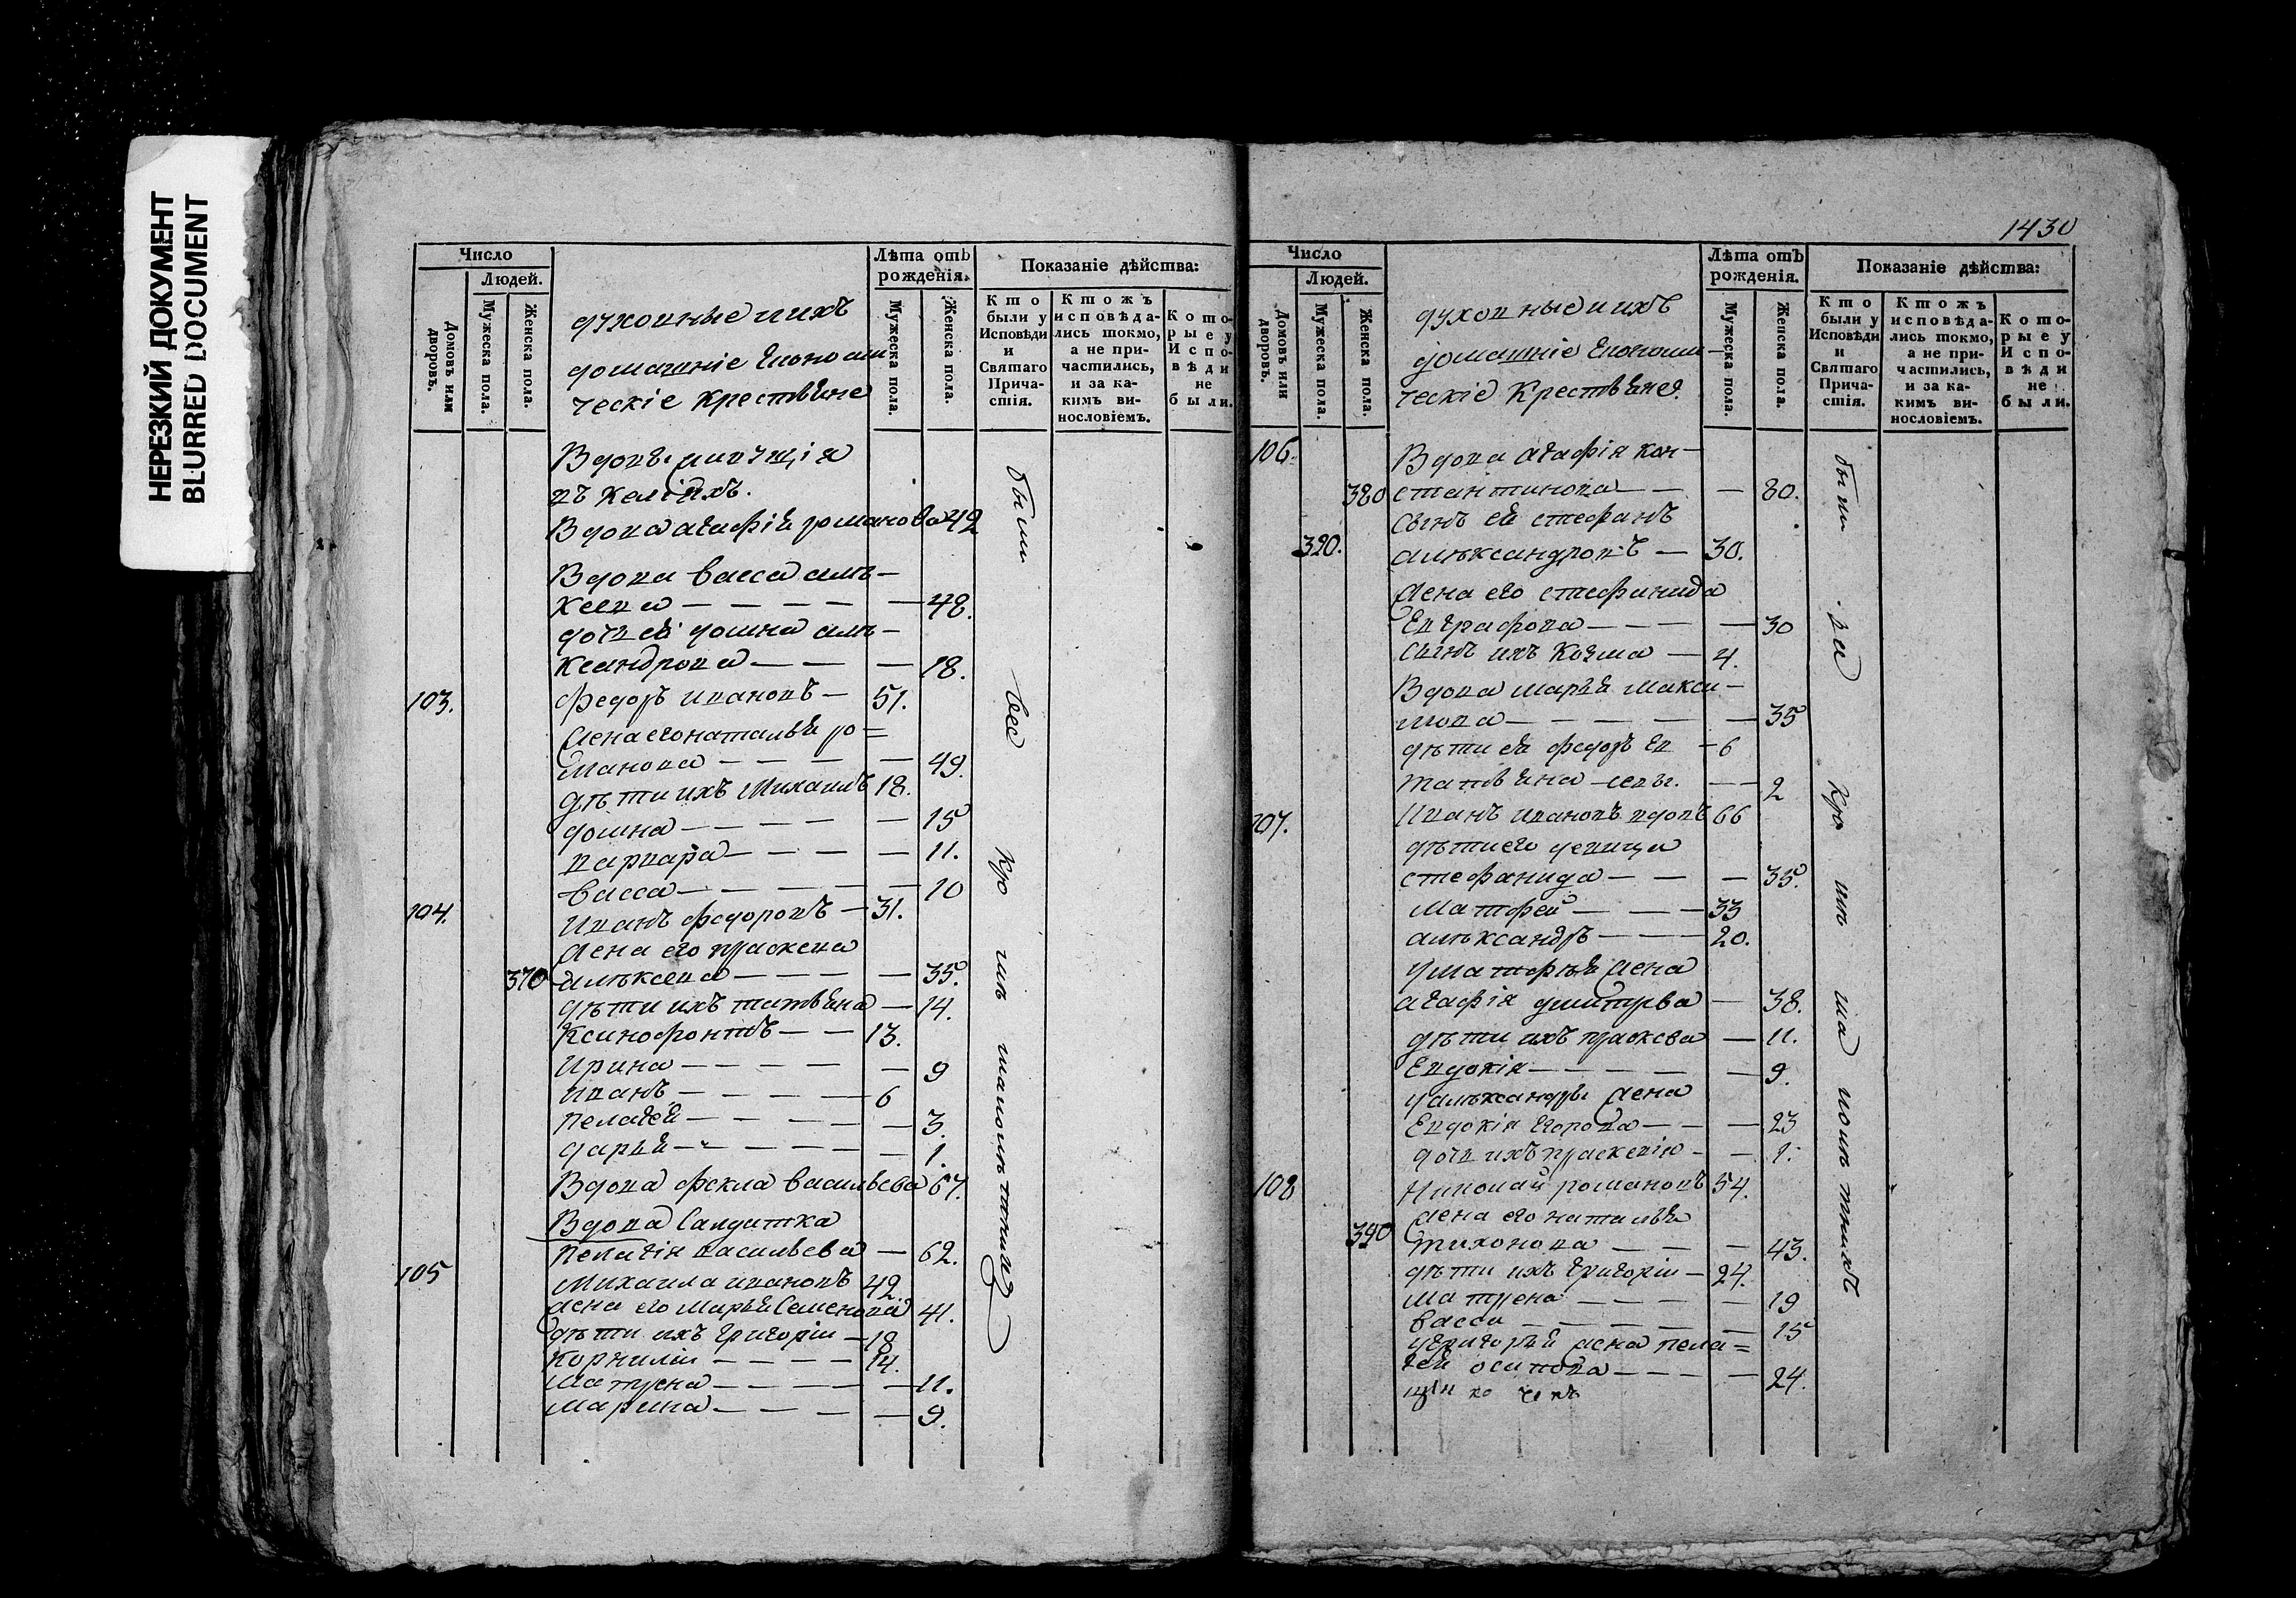 НЕРЕЗКИЙ ДОКУМЕНТ
BLURRED DOCUMENT
Число
Людей.
Домовъ или дворовъ.
Мужеска пола.
Женска пола.
духовные и ихъ
домашніе Економи
ческіе крестьяне
Лѣта отъ рожденія.
Мужеска пола.
Женска пола.
Показаніе дѣйства:
Кто были у Исповѣди и Святаго Причастія.
Ктожъ исповѣдались токмо, а не причастились, и за какимъ винословіемъ.
Которые у Исповѣди не были.
Вдовы живущія
въ келіяхъ.
Вдова агафія романова 42
Вдова васса алѣ-
ксева — 48.
дочь ея домна алѣ-
ксандрова — 18.
103. Федоръ ивановъ — 51.
жена его наталья ро=
манова — 49.
дѣти ихъ Михаилъ 18.
домна — 15
варвара — 11.
васса — 10
104. иванъ федоровъ — 31.
жена его прасковья
370 алѣксева — 35.
дѣти ихъ татьяна — 14.
Ксинофонтъ — 13.
Ирина — 9
иванъ — 6
пелагея — 3.
дарья — 1.
Вдова фекла васильева 67.
Вдова Салдатка
пелагія васильева — 62.
105 Михаила ивановъ 42
жена его Марья Семенова 41.
дѣти ихъ григоріи — 18
Корнилій — 14.
матрена — 11.
марина — 9.
были все
1430
Число
Людей.
Домовъ или дворовъ.
Мужеска пола.
Женска пола.
духовные и ихъ
домашніе Економи-
ческіе Крестьяне
Лѣта отъ рожденія.
Мужеска пола.
Женска пола.
Показаніе дѣйства:
Кто были у Исповѣди и Святаго Причастія.
Ктожъ исповѣдались токмо, а не причастились, и за какимъ винословіемъ.
Которые у Исповѣди не были.
106. Вдова агафія кон-
380 стантинова — 80.
сынъ ея стефанъ
320. алѣксандровъ — 30.
жена его стефанида
Евграфова — 30
сынъ ихъ козма — 4.
Вдова марья макси-
мова — 35
дѣти ея федоръ — 6
татьяна — 2
107. Иванъ ивановъ вдовъ 66
дѣти его девица
стефанида — 35.
Матфей — 33
алѣксандръ — 20.
у матфѣя жена
агафія дмитрева — 38.
дѣти ихъ прасковa — 11.
Евдокія — 9.
у алѣксандры жена
Евдокія егорова — 23
дочь ихъ прасковія — 1.
108 Николай романовъ 54.
жена его наталья
390 тихонова — 43.
дѣти ихъ григоріи — 24.
матрена — 19
васса — 15
у григорья жена пела=
гея осипова — 24.
были